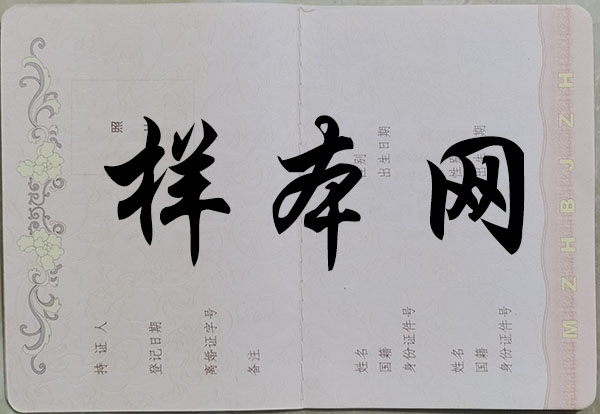 样本网
照
持证人
登记日期
离婚证字号
备注
性别
出生日期
姓名
国籍
身份证件号
性别
出生日期
姓名
国籍
身份证件号
MZHBJZH